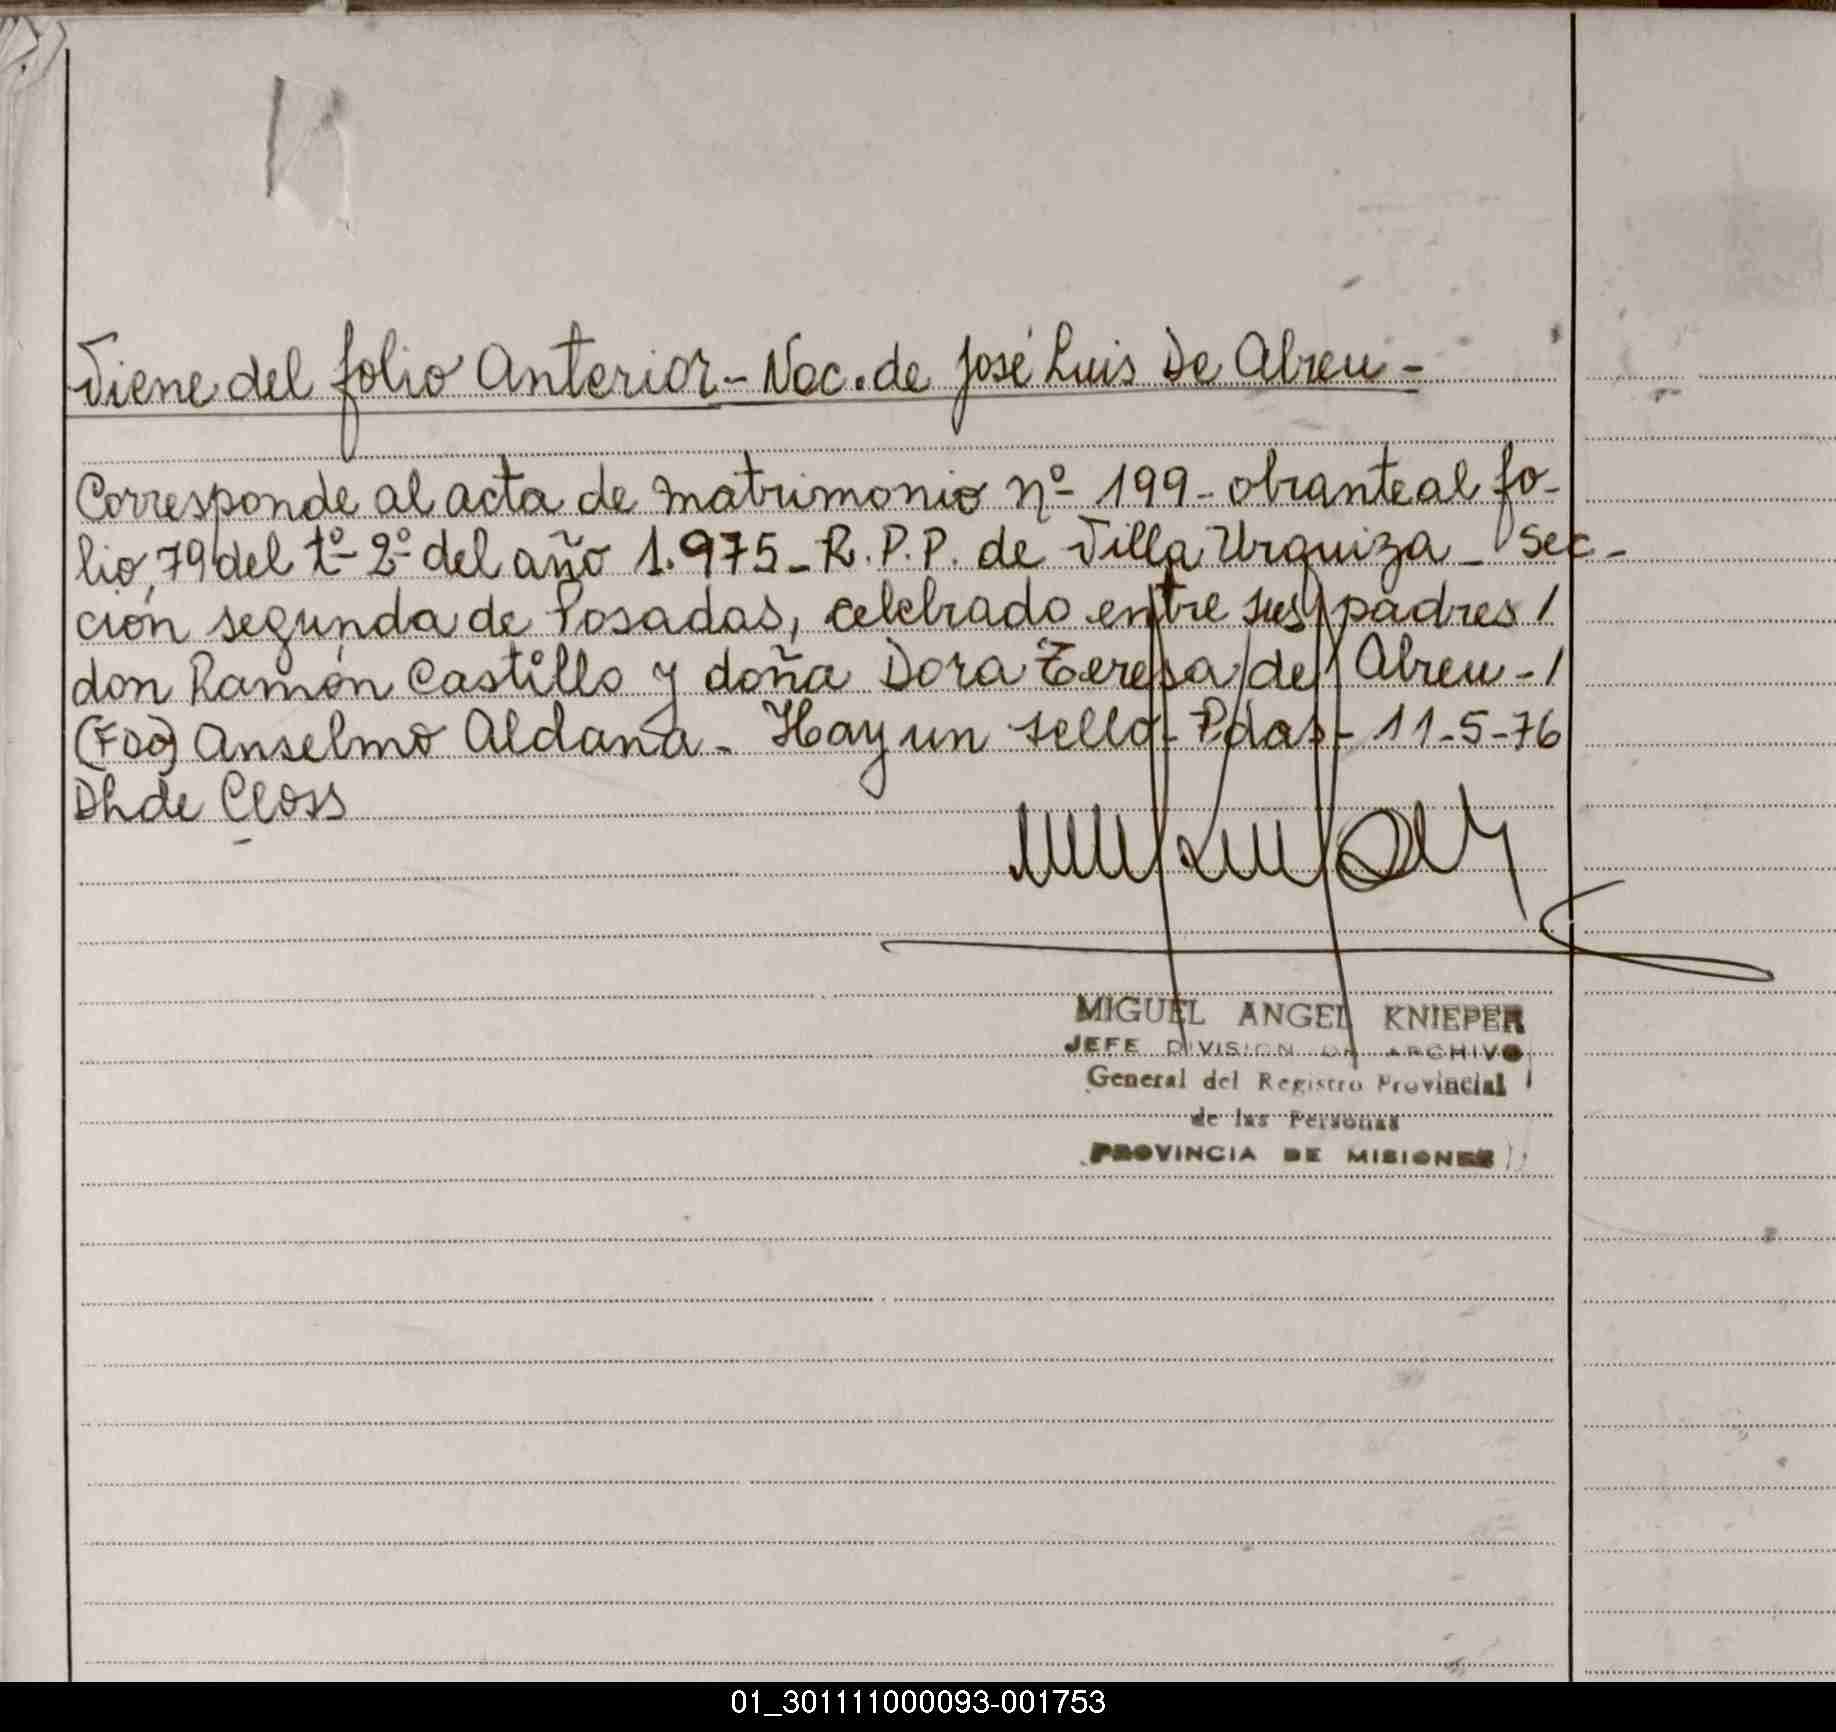 Viene del folio Anterior - Nac. de José Luis De Abreu -
Corresponde al acta de matrimonio nº 199 - obrante al fo-
lio, 79 del tº 2º del año 1.975 - R.P.P. de Villa Urquiza - Sec-
ción segunda de Posadas, celebrado entre sus padres /
don Ramón Castillo y doña Dora Teresa de Abreu - /
(Fdo) Anselmo Aldana - Hay un sello - Pdas - 11-5-76
Dhde Closs
MIGUEL ANGEL KNIEPER
JEFE DIVISION DE ARCHIVO
General del Registro Provincial
de las Personas
PROVINCIA DE MISIONES
01_301111000093-001753